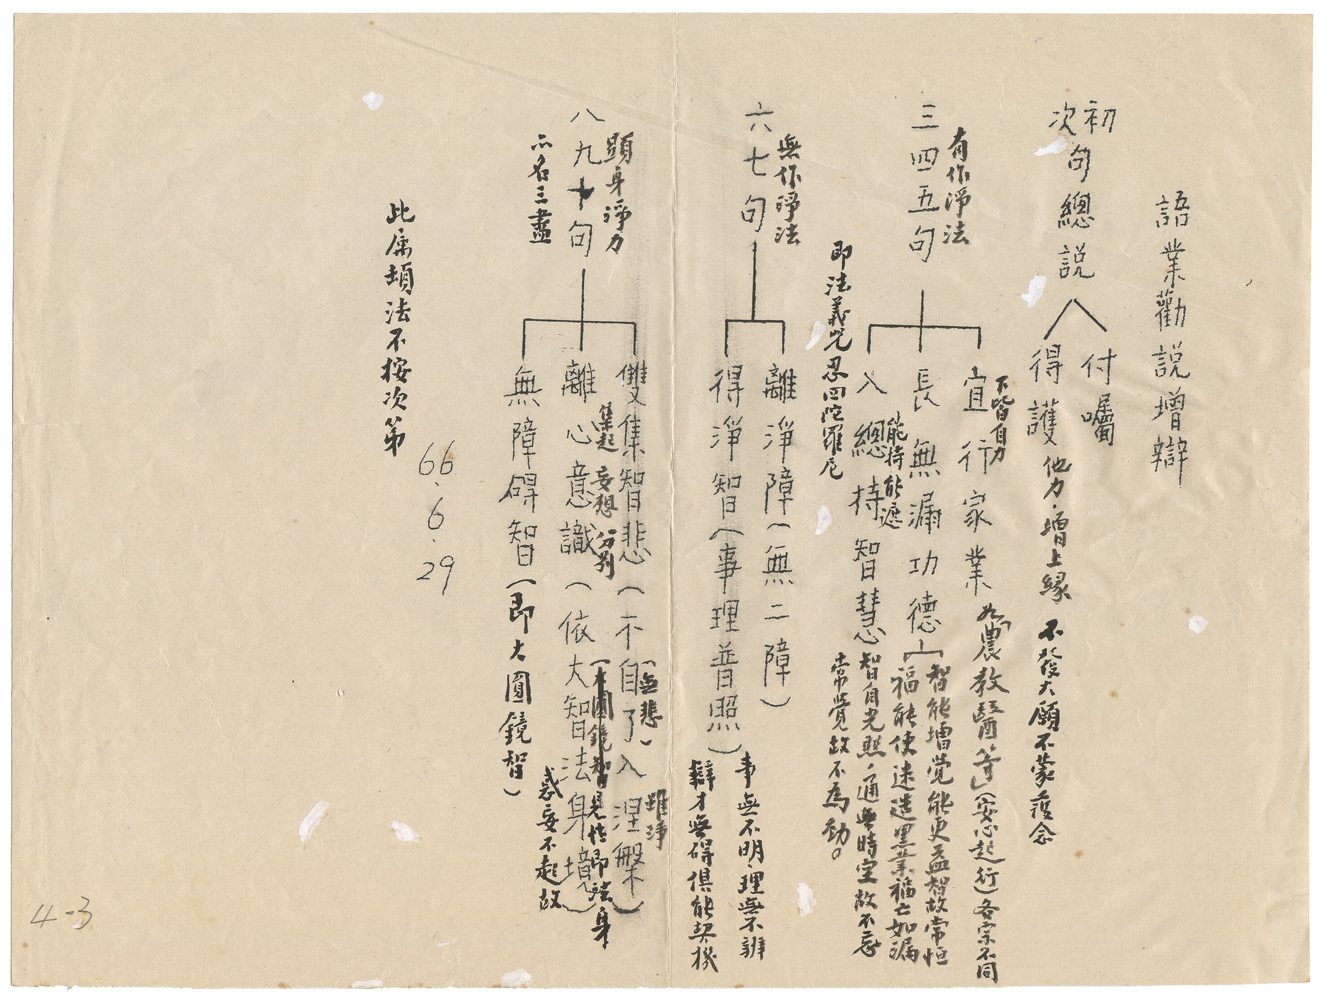 語業勸說增辯
初次句總說
付囑
得護 他力·增上緣 不發大願不蒙護念
三四五句
有作淨法
宜行家業 如「農教醫等」（安心起行）各宗不同
下皆自力
長無漏功德
智能增覺能更益智故常恒
福能使迷造黑業福亡如漏
入總持智慧
能持能遮
智自光照·通無時空故不忘
常覺故不為動。
即法義咒忍四陀羅尼
六七句
無作淨法
離淨障（無二障）
得淨智（事理普照）
事無不明·理無不辨
辯才無碍俱能契機
八九十句
顯身淨力
亦名三盡
雙集智悲（不自了入涅槃）
（無悲）
雖淨
離心意識（依大智法身境）
集起 妄想 分別
（大圓鏡智見性即法身
惑妄不起故
無障碍智（即大圓鏡智）
此属頌法不按次第
66.6.29
4-3